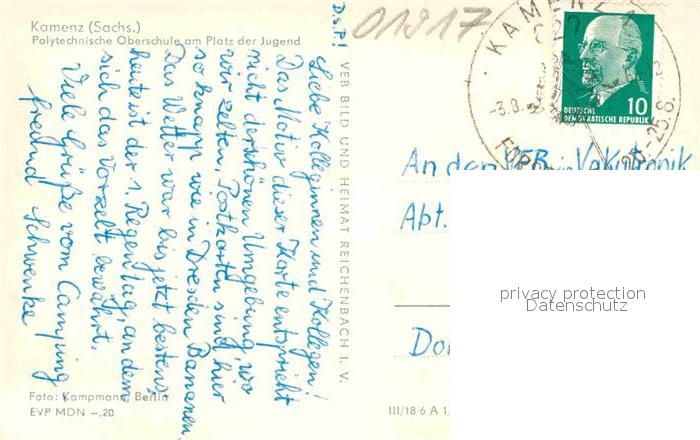 Kamenz (Sachs.)
Polytechnische Oberschule am Platz der Jugend
D.s.P!
Liebe Kolleginnen und Kollegen!
Das Motiv dieser Karte entspricht
nicht der schönen Umgebung, wo
wir zelten, Postkarten sind hier
so knapp wie in Dresden Bananen,
Das Wetter war bis jetzt bestens,
heute ist der 1. Regentag, an dem
sich das Vorzelt bewährt.
Viele Grüße vom Camping
freund Schwenke
Foto: Kampmann, Berlin
EVP MDN –,20
VEB BILD UND HEIMAT REICHENBACH I. V.
III/18 6 A 1/
01917
KAMENZ
DEUTSCHE
DEMOKRATISCHE REPUBLIK
10
An den VEB Vakutronik
Abt.
privacy protection
Datenschutz